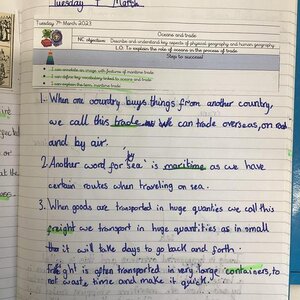 Tuesday 7th March
Tuesday 7th March 2023
Oceans and trade
NC objective: Describe and understand key aspects of physical geography and human geography
L.O. To explain the role of oceans in the process of trade
Steps to success!
I can annotate an image with features of maritime trade.
I can define key vocabulary linked to oceans and trade
I can explain the term maritime trade
1. When one country buys things from another country,
we call this trade we can trade overseas, on road
and by air.
2. Another word for 'by sea' is maritime as we have
certain routes when traveling on sea.
3. When goods are transported in huge quanties we call this
freight we transport in huge quantities as in small
it will take days to go back and forth.
freight is often transported in very large containers, to
not waste time and make it quick.